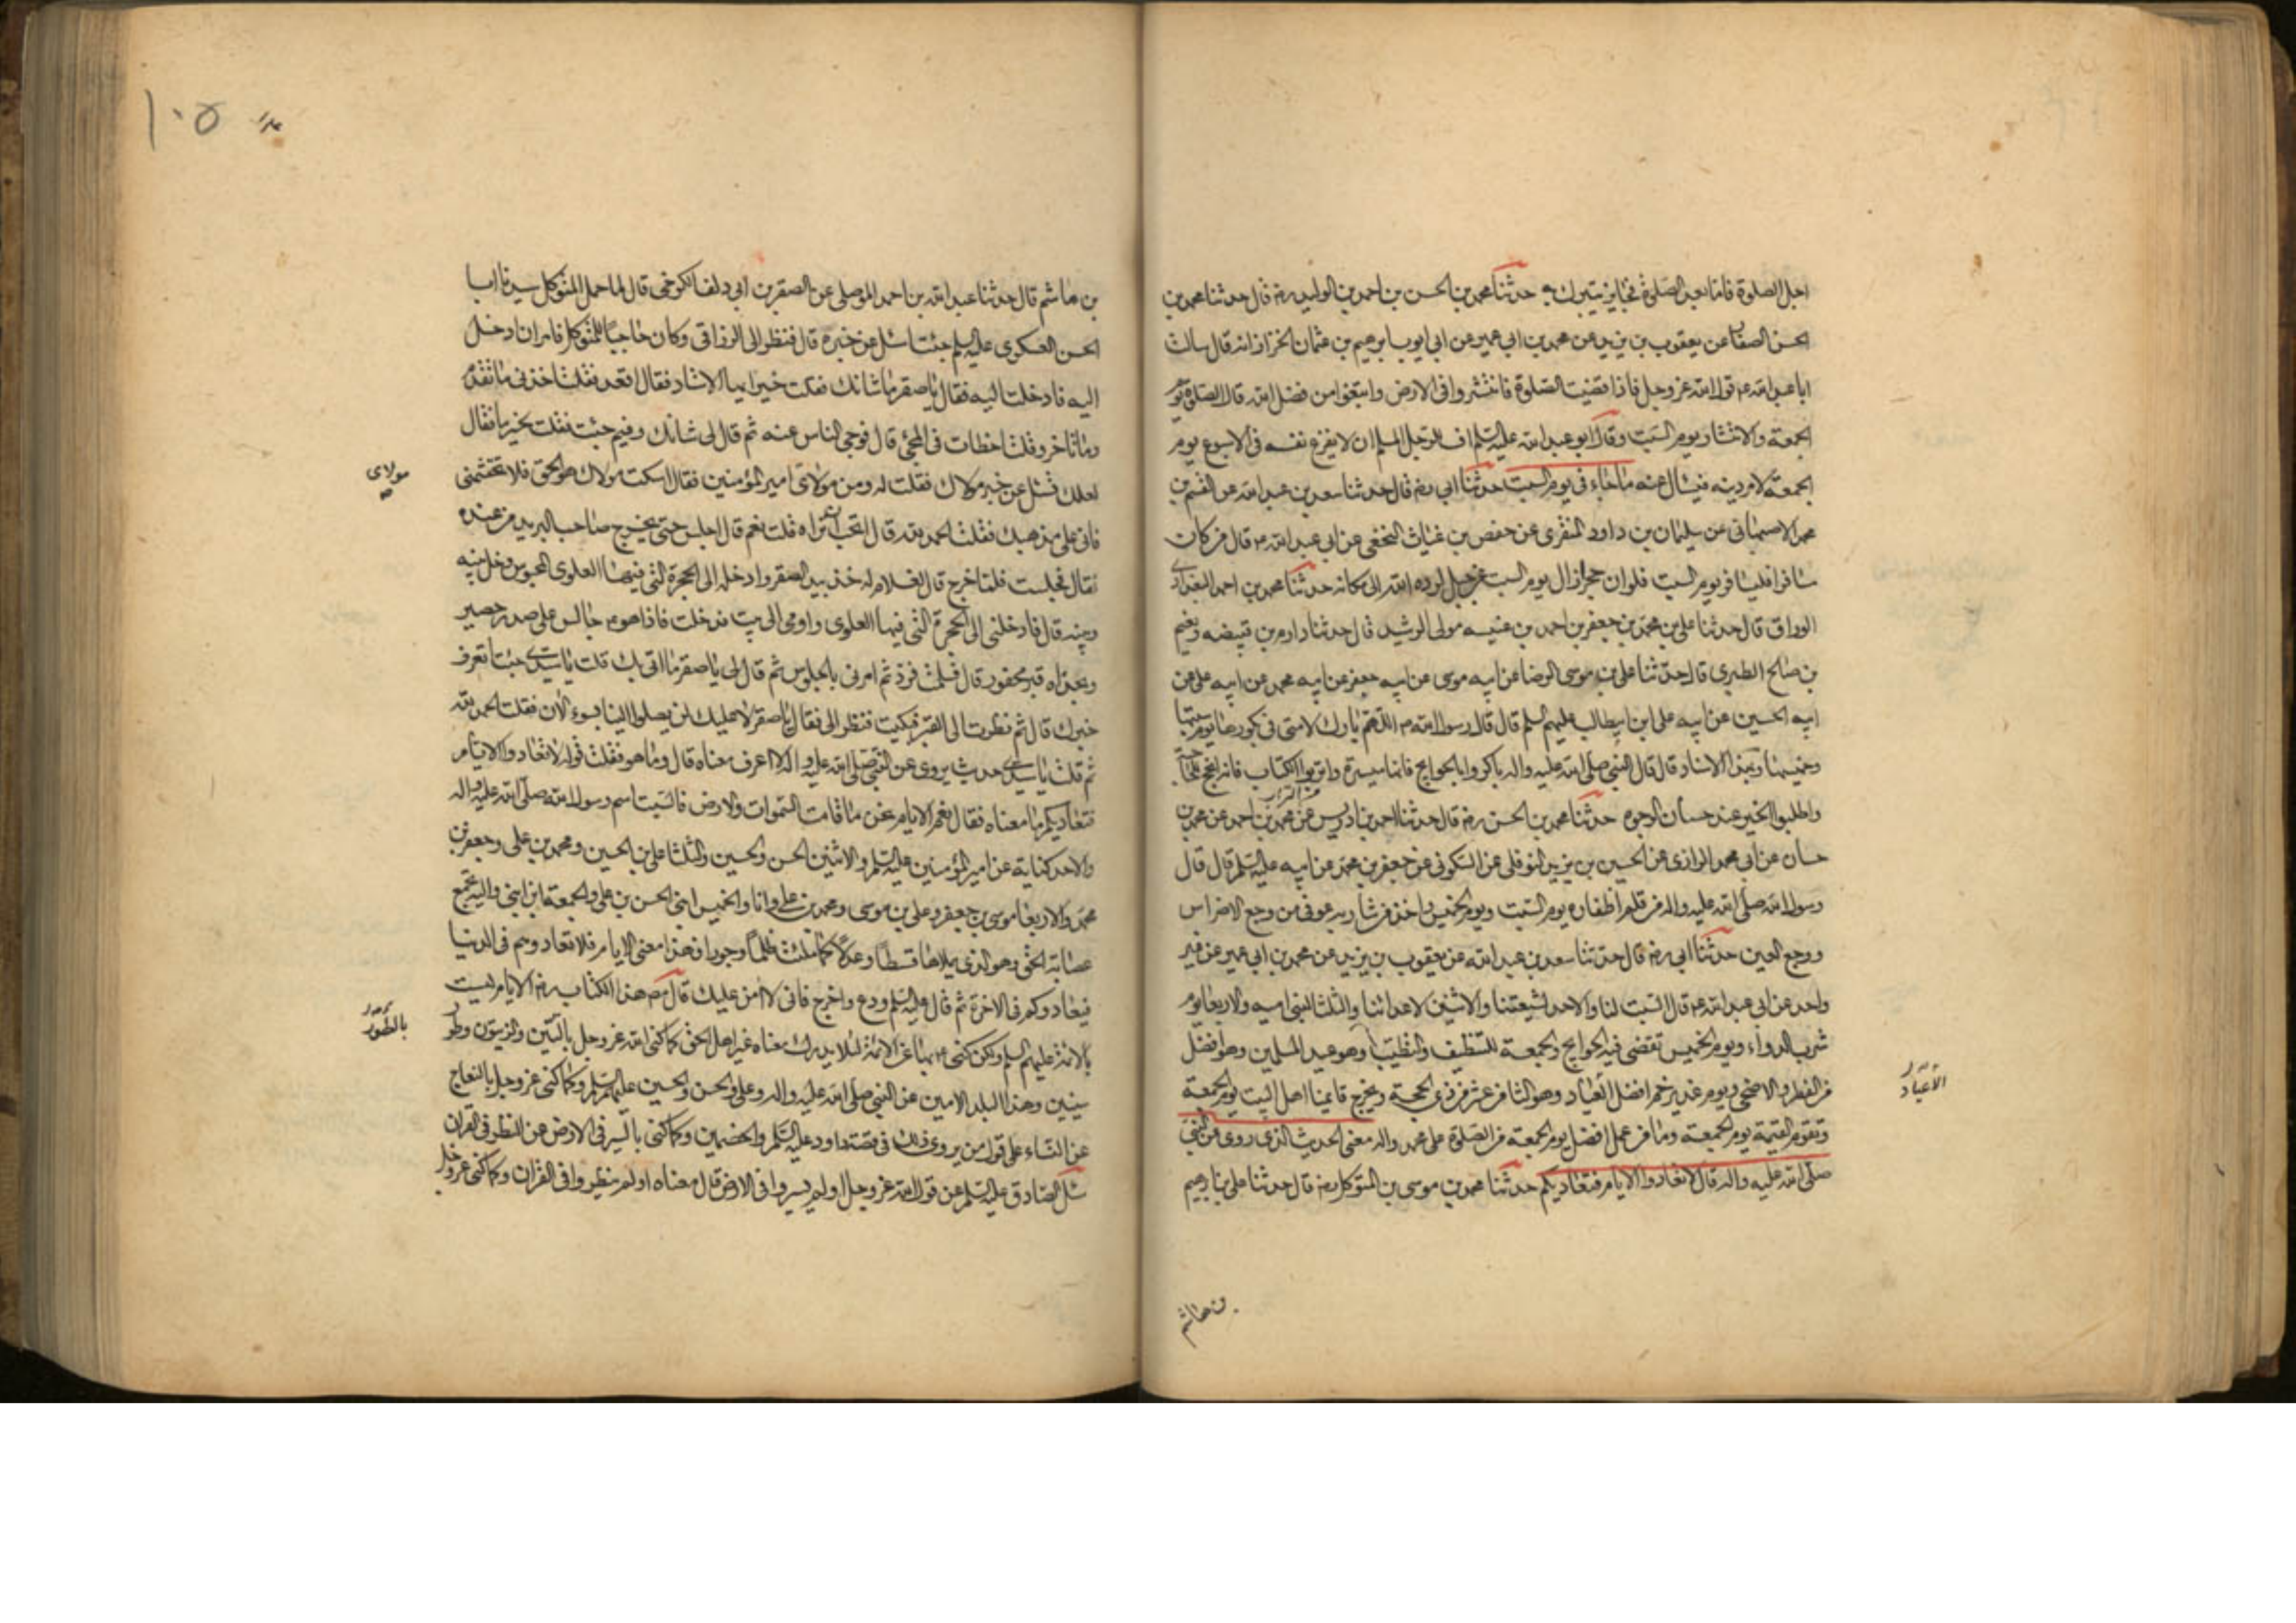 اجل الصلوة فاما بعد الصلوة فجايز يتبرك به حدثنا محمد بن الحسن بن احمد بن الوليد رضه قال حدثنا محمد بن
الحسن الصفار عن يعقوب بن يزيد عن محمد بن ابي عمير عن ابي ايوب ابرهيم بن عثمان الخزاز انه قال سالت
ابا عبد الله ع قول الله عز وجل فاذا قضيت الصلوة فانتشروا في الارض وابتغوا من فضل الله قال الصلوة يوم
الجمعة والانتشار يوم السبت وقال ابو عبد الله عليه السلم اف للرجل المسلم ان لا يفرغ نفسه في الاسبوع يوم
الجمعة لامر دينه فيسال عنه ما جاء في يوم السبت حدثنا ابي رضه قال حدثنا سعد بن عبد الله عن القسم بن
محمد الاصبهاني عن سليمان بن داود المنقري عن حفص بن غياث النخعي عن ابي عبد الله ع قال من كان
مسافرا فليسافر يوم السبت فلو ان حجرا زال يوم السبت عن جبل لرده الله الى مكانه حدثنا محمد بن احمد البغدادي
الوراق قال حدثنا علي بن محمد بن جعفر بن احمد بن عنبسه مولى الرشيد قال حدثنا دارم بن قبيصه ونعيم
بن صالح الطبري قال حدثنا علي بن موسى الرضا عن ابيه موسى عن ابيه جعفر عن ابيه محمد عن ابيه علي عن
ابيه الحسين عن ابيه علي ابن ابيطالب عليهم السلم قال قال رسول الله ص اللهم بارك لامتي في بكورها يوم سبتها
وخميسها وبهذا الاسناد قال قال النبي صلى الله عليه واله باكروا بالحوايج فانها ميسرة واتربوا الكتاب فانه انجح للحاجة
واطلبوا الخير عند حسان الوجوه حدثنا محمد بن الحسن رضه قال حدثنا احمد بن ادريس عن محمد بن احمد عن محمد بن
حسان عن ابي محمد الرازي عن الحسين بن يزيد النوفلي عن السكوني عن جعفر بن محمد عن ابيه عليه السلم قال قال
رسول الله صلى الله عليه واله من قلم اظفاره يوم السبت ويوم الخميس واخذ من شاربه عوفي من وجع الاضراس
ووجع العين حدثنا ابي رضه قال حدثنا سعد بن عبد الله عن يعقوب بن يزيد عن محمد بن ابي عمير عن غير
واحد عن ابي عبد الله ع قال السبت لنا والاحد لشيعتنا والاثنين لاعدائنا والثلثا لبني اميه والاربعا يوم
شرب الدواء ويوم الخميس تقضى فيه الحوايج والجمعة للتنظيف والتطيب وهو عيد المسلمين وهو افضل
من الفطر والاضحى ويوم غدير خم افضل العياد وهو الثامن عشر من ذي الحجة ويخرج قايمنا اهل البيت يوم الجمعة
الاعياد
وتقوم القيمة يوم الجمعة وما من عمل افضل يوم الجمعة من الصلوة على محمد واله معنى الحديث الذي روي عن النبي
صلى الله عليه واله قال لا تعادوا الايام فتعاديكم حدثنا محمد بن موسى بن المتوكل رضه قال حدثنا علي بن ابرهيم
بن هاشم
١٠٥
بن هاشم قال حدثنا عبد الله بن احمد الموصلي عن الصقر بن ابي دلف الكرخي قال لما حمل المتوكل سيدنا ابا
الحسن العسكري عليه السلم جئت اسئل عن خبره قال فنظر الى الزراقي وكان حاجبا للمتوكل فامر ان ادخل
اليه فادخلت اليه فقال يا صقر ما شانك فقلت خيرا ايها الاستاد فقال اقعد فقلت اخذني ما تقدم
وما تاخر وقلت اخطات في المجئ قال فوجي الناس عنه ثم قال لي شانك وفيم جئت فقلت بخير ما فقال
لعلك تسئل عن خبر مولاك فقلت له ومن مولاي امير المؤمنين فقال اسكت مولاك هو الحق فلا تحتشمني
مولاي
فاني على مذهبك فقلت الحمد لله قال اتحب ان تراه قلت نعم قال اجلس حتى يخرج صاحب البريد من عنده
قال فجلست فلما خرج قال لغلام له خذ بيد الصقر وادخله الى الحجرة التي فيها العلوي المحبوس وخل بينه
وبينه قال فادخلني الى الحجرة التي فيها العلوي واومى الى بيت فدخلت فاذا هو ع جالس على صدر حصير
وبحذاه قبر محفور قال فسلمت فرد ثم امرني بالجلوس ثم قال لي يا صقر ما اتى بك قلت يا سيدي جئت اتعرف
خبرك قال ثم نظرت الى القبر فبكيت فنظر الي فقال يا صقر لا عليك لن يصلوا الينا بسوء الان فقلت الحمد لله
ثم قلت يا سيدي حديث يروى عن النبي صلى الله عليه واله لا اعرف معناه قال وما هو فقلت قوله لا تعادوا الايام
فتعاديكم ما معناه فقال نعم الايام نحن ما قامت السموات والارض فالسبت اسم رسول الله صلى الله عليه واله
والاحد كناية عن امير المؤمنين عليه السلم والاثنين الحسن والحسين والثلثا علي بن الحسين ومحمد بن علي وجعفر بن
محمد والاربعا موسى بن جعفر وعلي بن موسى ومحمد بن علي وانا والخميس ابني الحسن بن علي والجمعة ابن ابني واليه تجتمع
عصابة الحق وهو الذي يملاها قسطا وعدلا كما ملئت ظلما وجورا فهذا معنى الايام فلا تعادوهم في الدنيا
فيعادوكم في الاخرة ثم قال عليه السلم ودع واخرج فاني لا امن عليك قال مصـ هذا الكتاب رضه الايام ليست
بالائمة عليهم السلم ولكن كني ع بها عن الائمة لئلا يدرك معناه غير اهل الحق كما كنى الله عز وجل بالتين والزيتون وطور
بالطور
سينين وهذا البلد الامين عن النبي صلى الله عليه واله وعلي والحسن والحسين عليهم السلم وكما كنى عز وجل بالنعاج
عن النساء على قول من يروي ذلك في قصة داود عليه السلم والخصمين وكما كنى بالسير في الارض عن النظر في القران
سئل الصادق عليه السلم عن قول الله عز وجل اولم يسيروا في الارض قال معناه اولم ينظروا في القران وكما كنى عز وجل